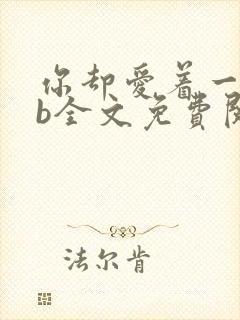 你却爱着一
b全文免費
法尔肯